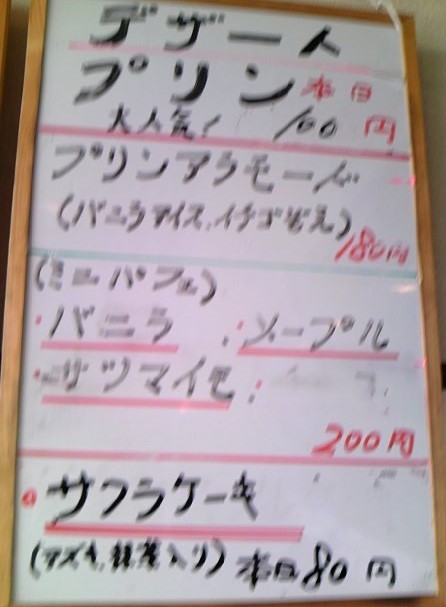 デザート
プリン 本日
大人気! 100円
プリンアラモード
(バニラアイス、イチゴぞえ)
180円
(ミニパフェ)
・バニラ ・メープル
・サツマイモ ・
200円
サフラケーキ
(アズキ、抹茶入り) 本日80円